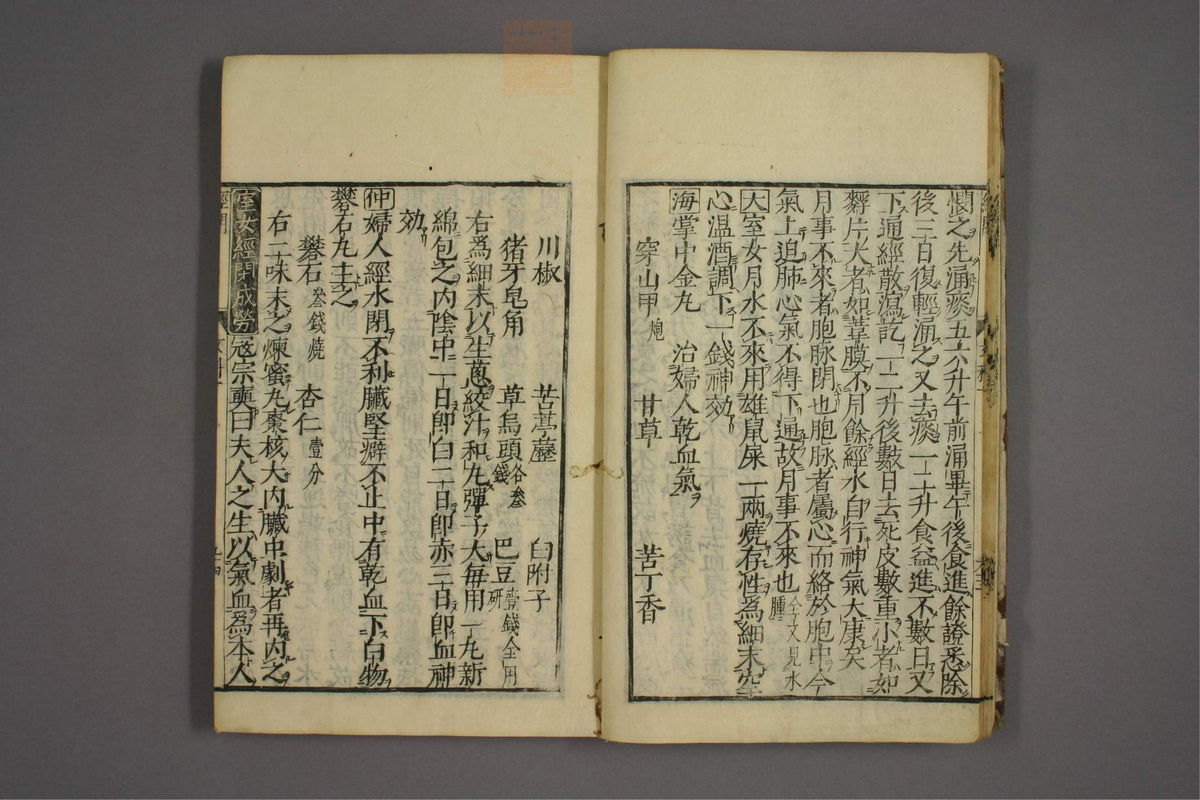 懊之先涌痰五六升午前涌畢午後食進餘證悉除
後三日復輕涌之又去痰一二升食益進不數日又
下通經散瀉訖一二升後數日去死皮數重小者如
麩片大者如葦膜不月餘經水自行神氣大康矣
月事不來者胞脉閉也胞脉者屬心而絡於胞中今
氣上迫肺心氣不得下通故月事不來也 全文見水腫
大室女月水不來用雄鼠屎一兩燒存性為細末空
心温酒調下一錢神効
海掌中金丸 治婦人乾血氣
穿山甲 炮 甘草 苦丁香
川椒 苦葶藶 白附子
猪牙皂角 草烏頭 各叁錢 巴豆 壹錢全用研
右為細末以生蔥絞汁和丸彈子大每用一丸新
綿包之内陰中一日即白二日即赤三日即血神
効
仲婦人經水閉不利臟堅癖不止中有乾血下白物
礬石丸主之
礬石 叁錢燒 杏仁 壹分
右二味末之煉蜜丸棗核大内臟中劇者再内之
室女經閉成勞 寇宗奭曰夫人之生以氣血為本人